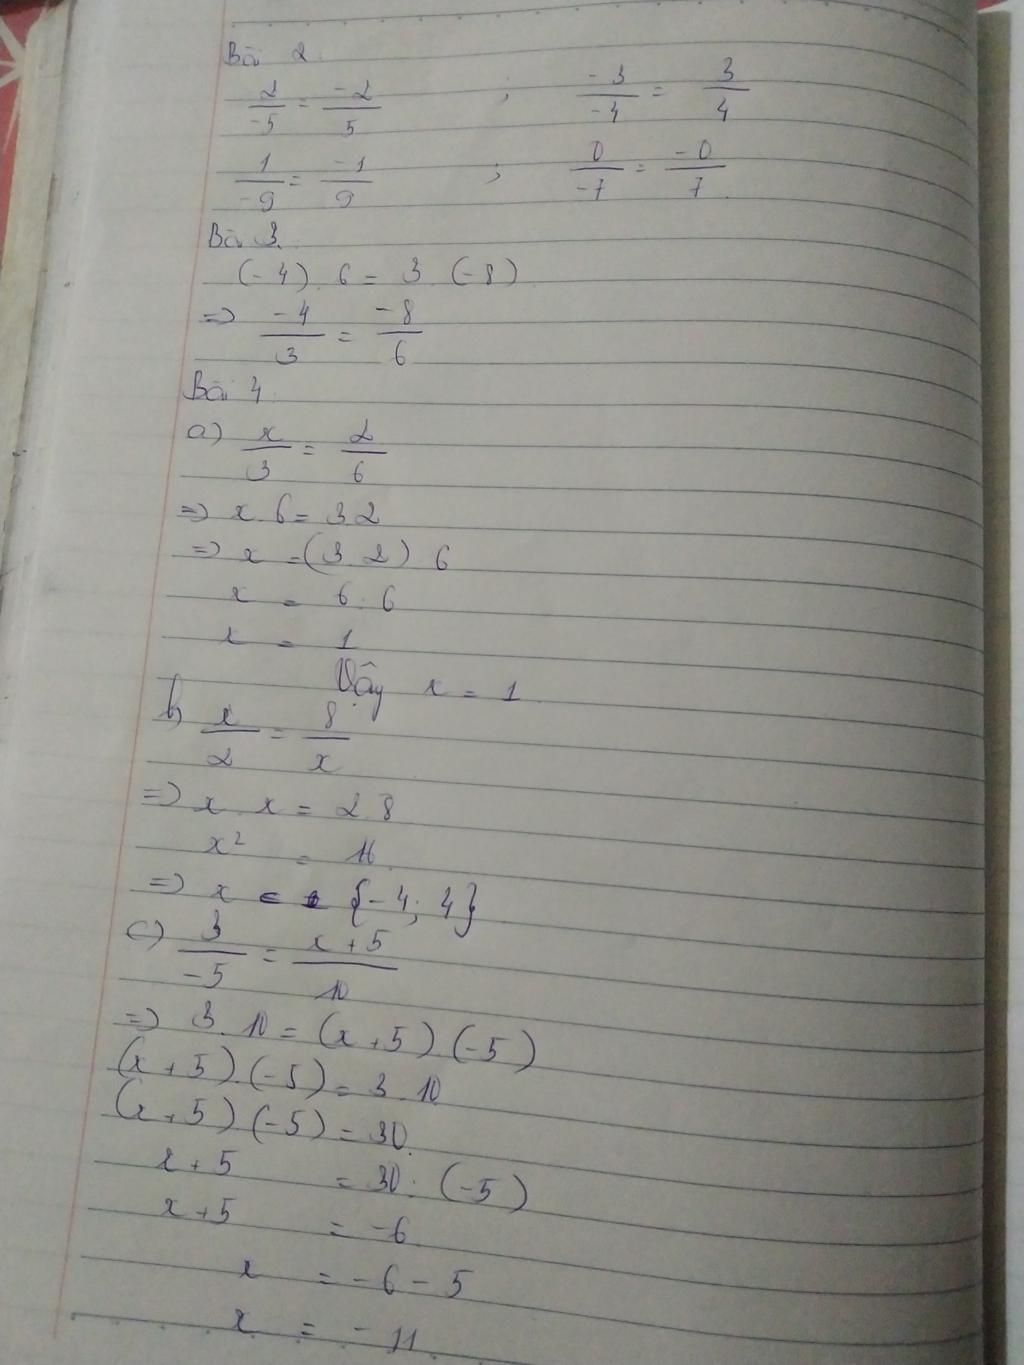 Bài 2.
2/-5 = -2/5 ; -3/-4 = 3/4
1/-9 = -1/9 ; 0/-7 = -0/7
Bài 3.
(-4) . 6 = 3 . (-8)
=> -4/3 = -8/6
Bài 4
a) x/3 = 2/6
=> x . 6 = 3.2
=> x = (3.2) : 6
x = 6 : 6
x = 1
Vậy x = 1
b) x/2 = 8/x
=> x . x = 2.8
x² = 16
=> x ∈ {-4; 4}
c) 3/-5 = x+5/10
=> 3.10 = (x+5).(-5)
(x+5).(-5) = 3.10
(x+5).(-5) = 30
x+5 = 30 : (-5)
x+5 = -6
x = -6 - 5
x = -11